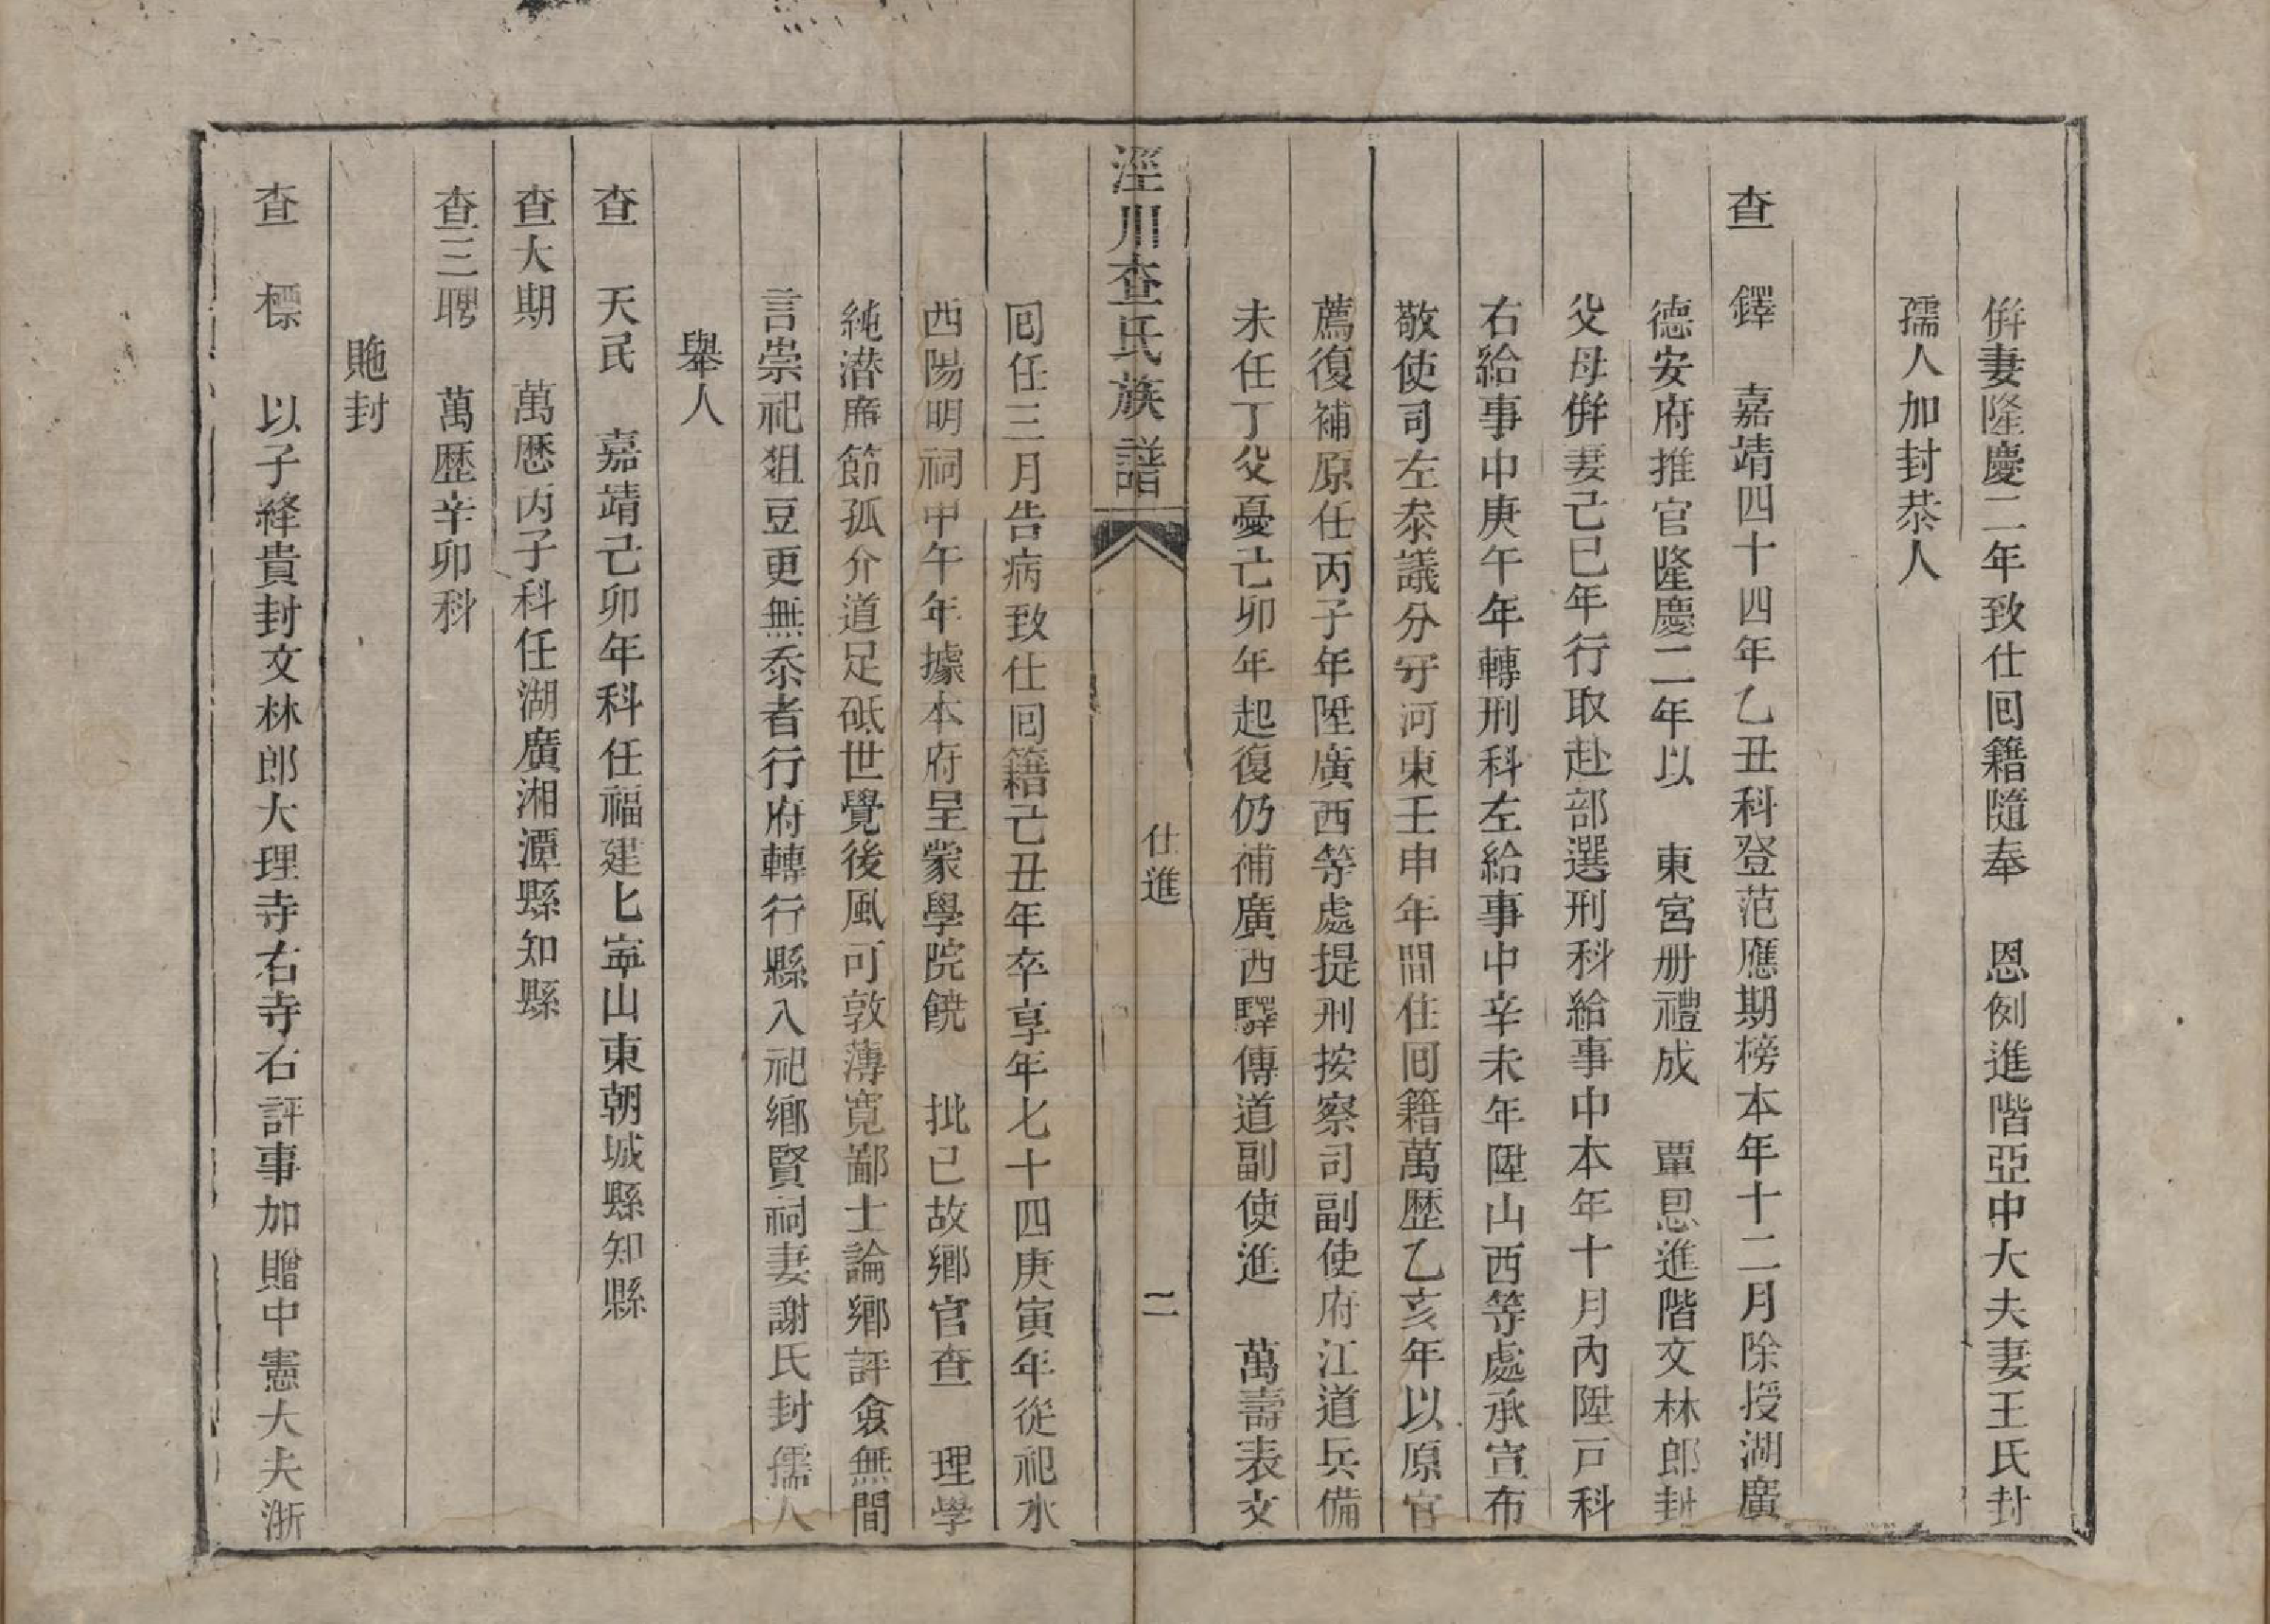 併妻隆慶二年致仕囘籍隨奉　恩例進階亞中大夫妻王氏封
孺人加封恭人
查　鐸　嘉靖四十四年乙丑科登范應期榜本年十二月除授湖廣
德安府推官隆慶二年以　東宮册禮成　覃恩進階文林郎封
父母併妻己巳年行取赴部選刑科給事中本年十月內陞戸科
右給事中庚午年轉刑科左給事中辛未年陞山西等處承宣布
敬使司左叅議分守河東壬申年間住囘籍萬歷乙亥年以原官
薦復補原任丙子年陞廣西等處提刑按察司副使府江道兵備
未任丁父憂己卯年起復仍補廣西驛傳道副使進　萬壽表文
涇川查氏族譜　仕進　二
囘任三月告病致仕囘籍己丑年卒享年七十四庚寅年從祀水
西陽明祠甲午年據本府呈蒙學院饒　批已故鄉官查　理學
純潜席節孤介道足砥世覺後風可敦薄寬鄙士論鄉評僉無間
言崇祀俎豆更無忝者行府轉行縣入祀鄉賢祠妻謝氏封孺人
舉人
查　天民　嘉靖己卯年科任福建匕寍山東朝城縣知縣
查大期　萬厯丙子科任湖廣湘潭縣知縣
查三聘　萬歷辛卯科
貤封
查　標　以子絳貴封文林郎大理寺右寺右評事加贈中憲大夫浙